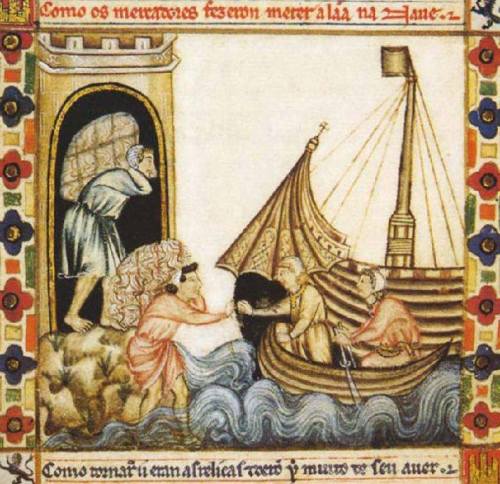 Como os mercadores fezeron meter a lãa na Naue.
Como tornar̃ u eran as relicas y muito de seu auer.